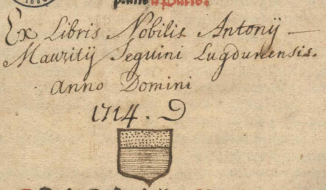 Ex Libris Nobilis Antonij
Mauritij Seguini Lugdunensis.
Anno Domini
1714.